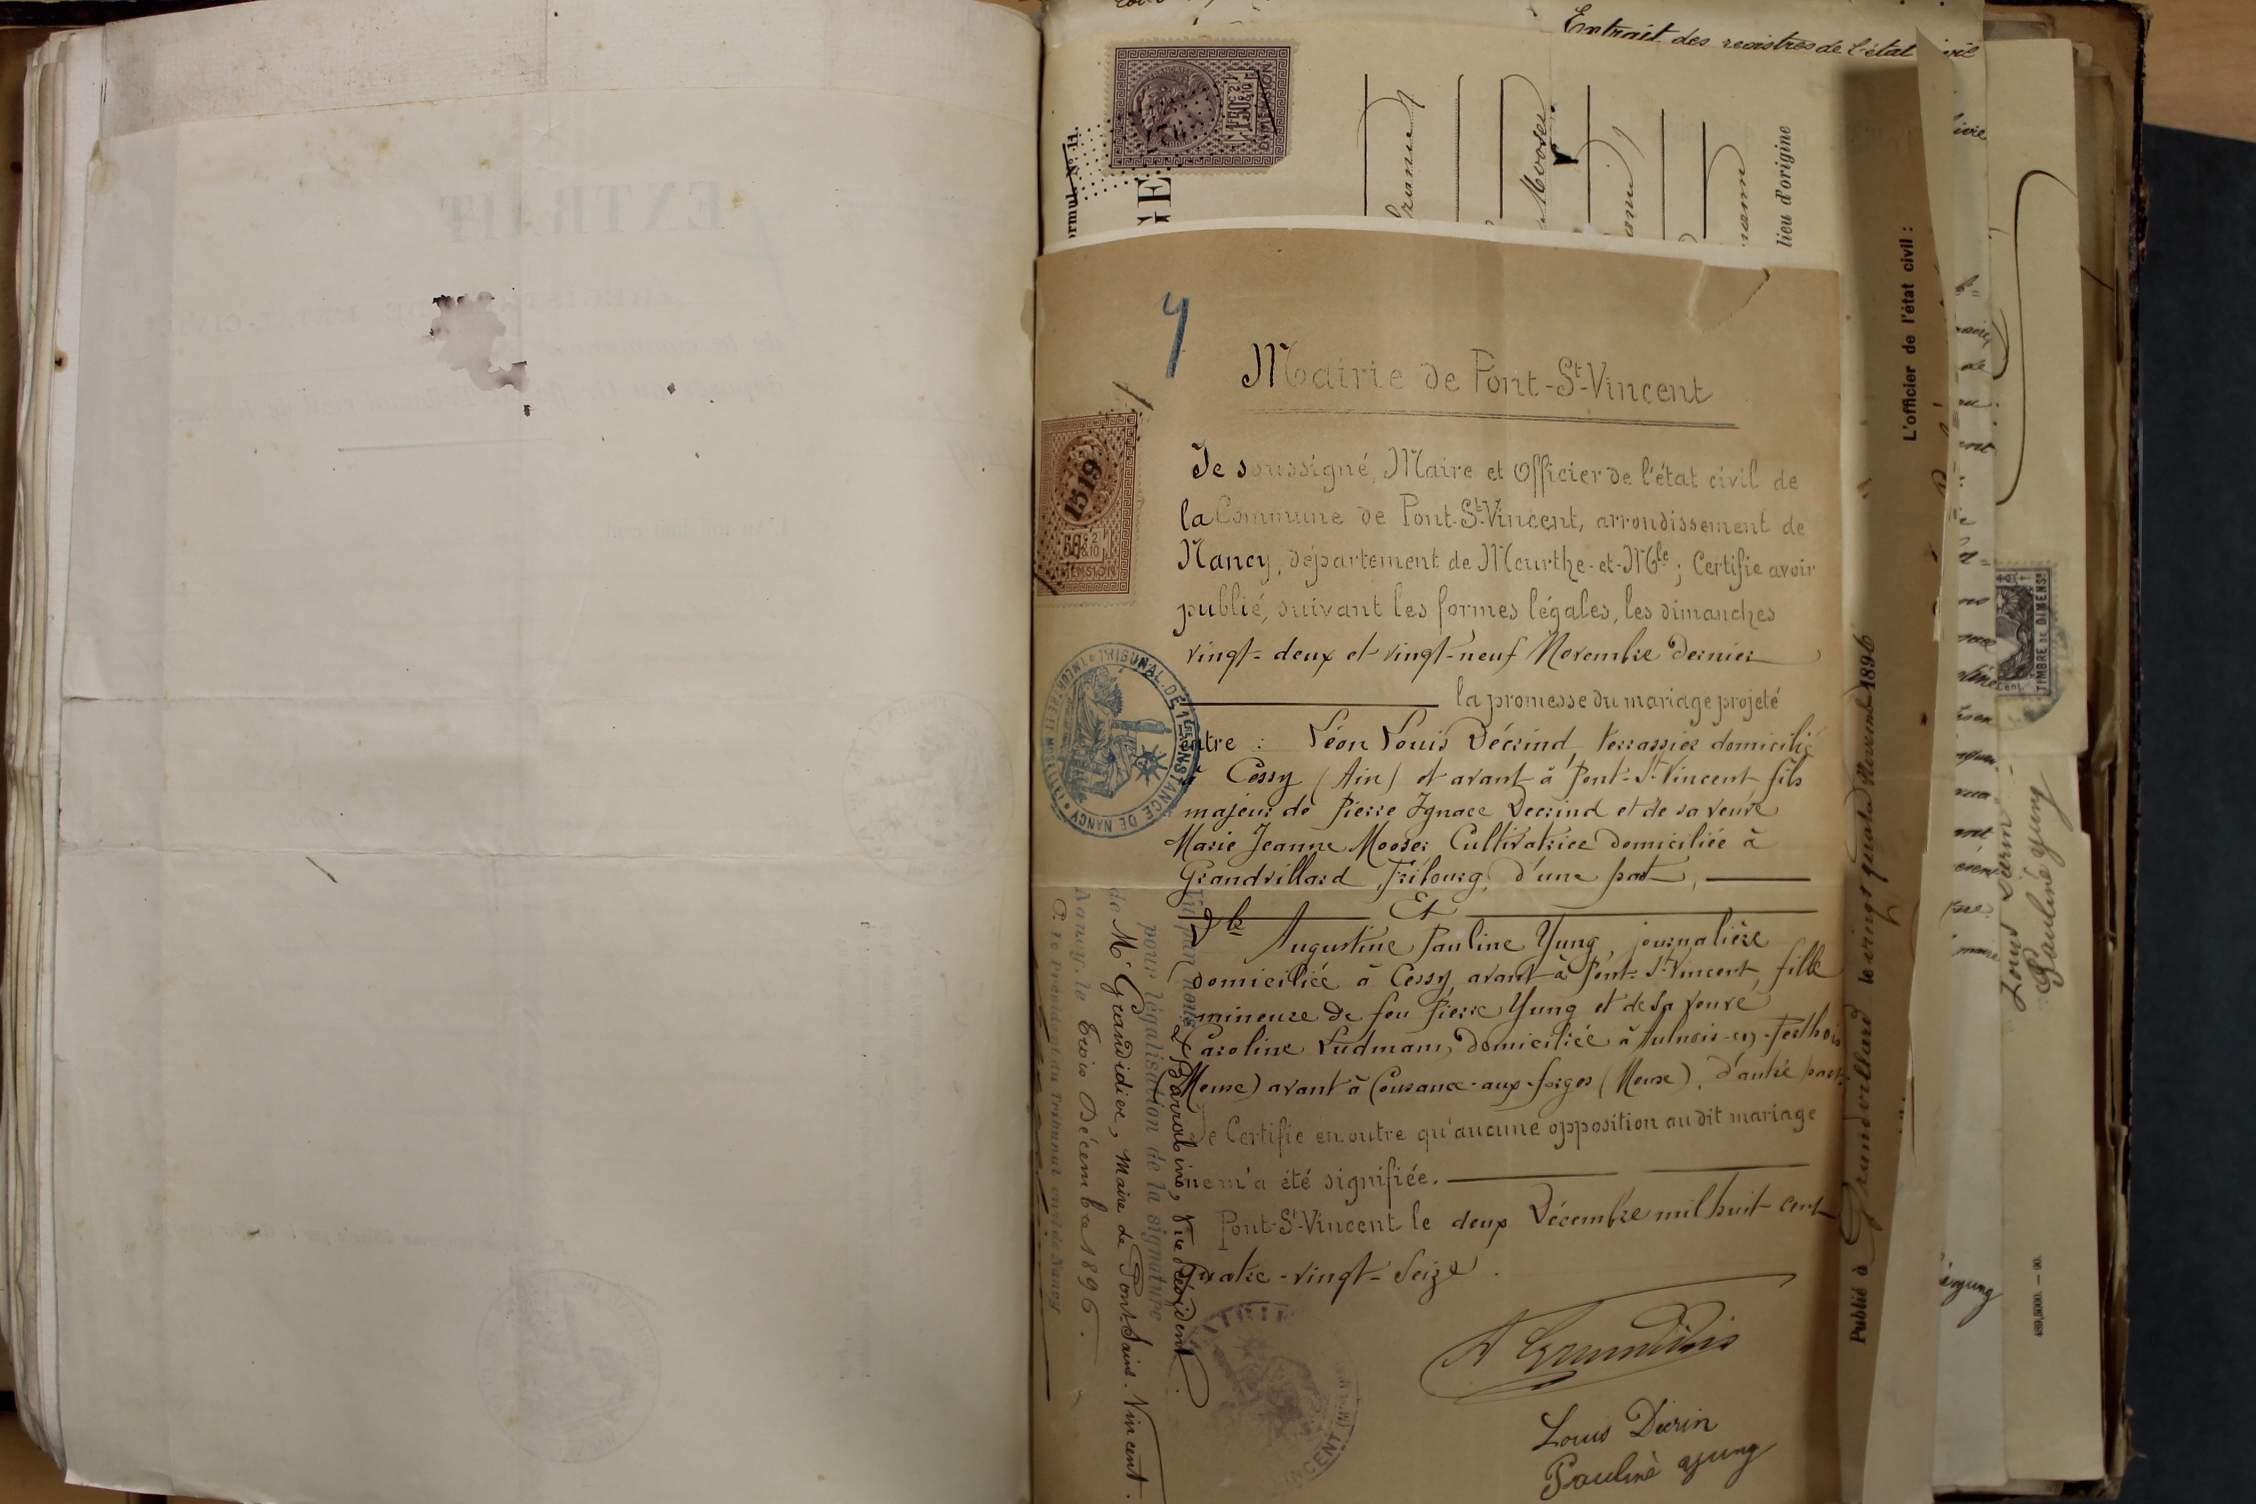 Extrait des registres de l'état civil
ormul. Nº 11.
lieu d'origine
EXTRAIT
Mairie de Pont-St-Vincent
Je soussigné, Maire et Officier de l'état civil de
la Commune de Pont-St-Vincent, arrondissement de
Nancy, département de Meurthe-et-Mlle; Certifie avoir
publié, suivant les formes légales, les dimanches
vingt-deux et vingt-neuf Novembre dernier
la promesse du mariage projeté
entre : Léon Louis Décrind, terrassier domicilié
à Cessy (Ain) et avant à Pont-St-Vincent fils
majeur de Pierre Ignace Decrind et de sa veuve
Marie Jeanne Mooser Cultivatrice domiciliée à
Grandvillard, Fribourg, d'une part,
Et
Dlle Augustine Pauline Yung, journalière
domiciliée à Cessy, avant à Pont-St-Vincent, fille
mineure de feu Pierre Yung et de sa veuve
Caroline Ludmann, domiciliée à Aulnois-en-Perthois
(Meuse) avant à Cousance-aux-forges (Meuse), d'autre part.
Je Certifie en outre qu'aucune opposition au dit mariage
ne m'a été signifiée.
Pont-St-Vincent le deux Décembre mil huit cent
quatre-vingt-seize.
A Grandidier
Louis Décrin
Pauline Yung
1519
TRIBUNAL DE 1ERE INSTANCE DE NANCY
Vu par nous, Vice Président
pour légalisation de la signature
de Mr Grandidier, Maire de Pont-Saint-Vincent.
Nancy, le Trois Décembre 1896.
P. le Président du Tribunal civil de Nancy
Publié à Grandvillard le vingt quatre Novembre 1896
L'officier de l'état civil :
TIMBRE DE DIMENSn
Pauline Yung